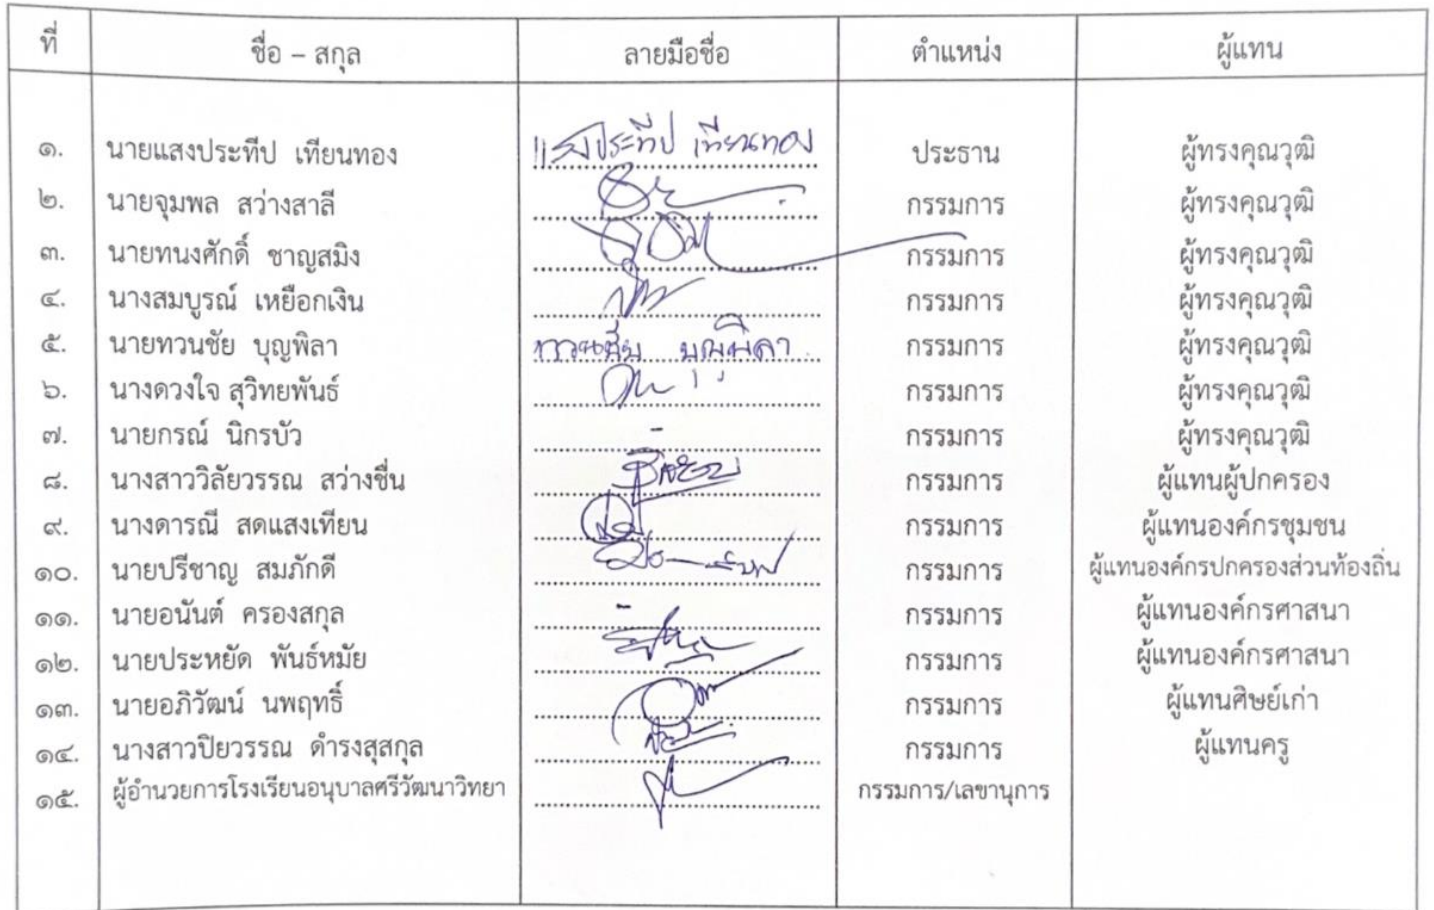 ที่ ชื่อ – สกุล ลายมือชื่อ ตำแหน่ง ผู้แทน
๑. นายแสงประทีป เทียนทอง แสงประทีป เทียนทอง ประธาน ผู้ทรงคุณวุฒิ
๒. นายจุมพล สว่างสาลี กรรมการ ผู้ทรงคุณวุฒิ
๓. นายทนงศักดิ์ ชาญสมิง กรรมการ ผู้ทรงคุณวุฒิ
๔. นางสมบูรณ์ เหยือกเงิน กรรมการ ผู้ทรงคุณวุฒิ
๕. นายทวนชัย บุญพิลา ทวนชัย บุญพิลา กรรมการ ผู้ทรงคุณวุฒิ
๖. นางดวงใจ สุวิทยพันธ์ กรรมการ ผู้ทรงคุณวุฒิ
๗. นายกรณ์ นิกรบัว - กรรมการ ผู้ทรงคุณวุฒิ
๘. นางสาววิลัยวรรณ สว่างชื่น กรรมการ ผู้แทนผู้ปกครอง
๙. นางดารณี สดแสงเทียน กรรมการ ผู้แทนองค์กรชุมชน
๑๐. นายปรีชาญ สมภักดี กรรมการ ผู้แทนองค์กรปกครองส่วนท้องถิ่น
๑๑. นายอนันต์ ครองสกุล กรรมการ ผู้แทนองค์กรศาสนา
๑๒. นายประหยัด พันธ์หมัย กรรมการ ผู้แทนองค์กรศาสนา
๑๓. นายอภิวัฒน์ นพฤทธิ์ กรรมการ ผู้แทนศิษย์เก่า
๑๔. นางสาวปิยวรรณ ดำรงสุสกุล กรรมการ ผู้แทนครู
๑๕. ผู้อำนวยการโรงเรียนอนุบาลศรีวัฒนาวิทยา กรรมการ/เลขานุการ